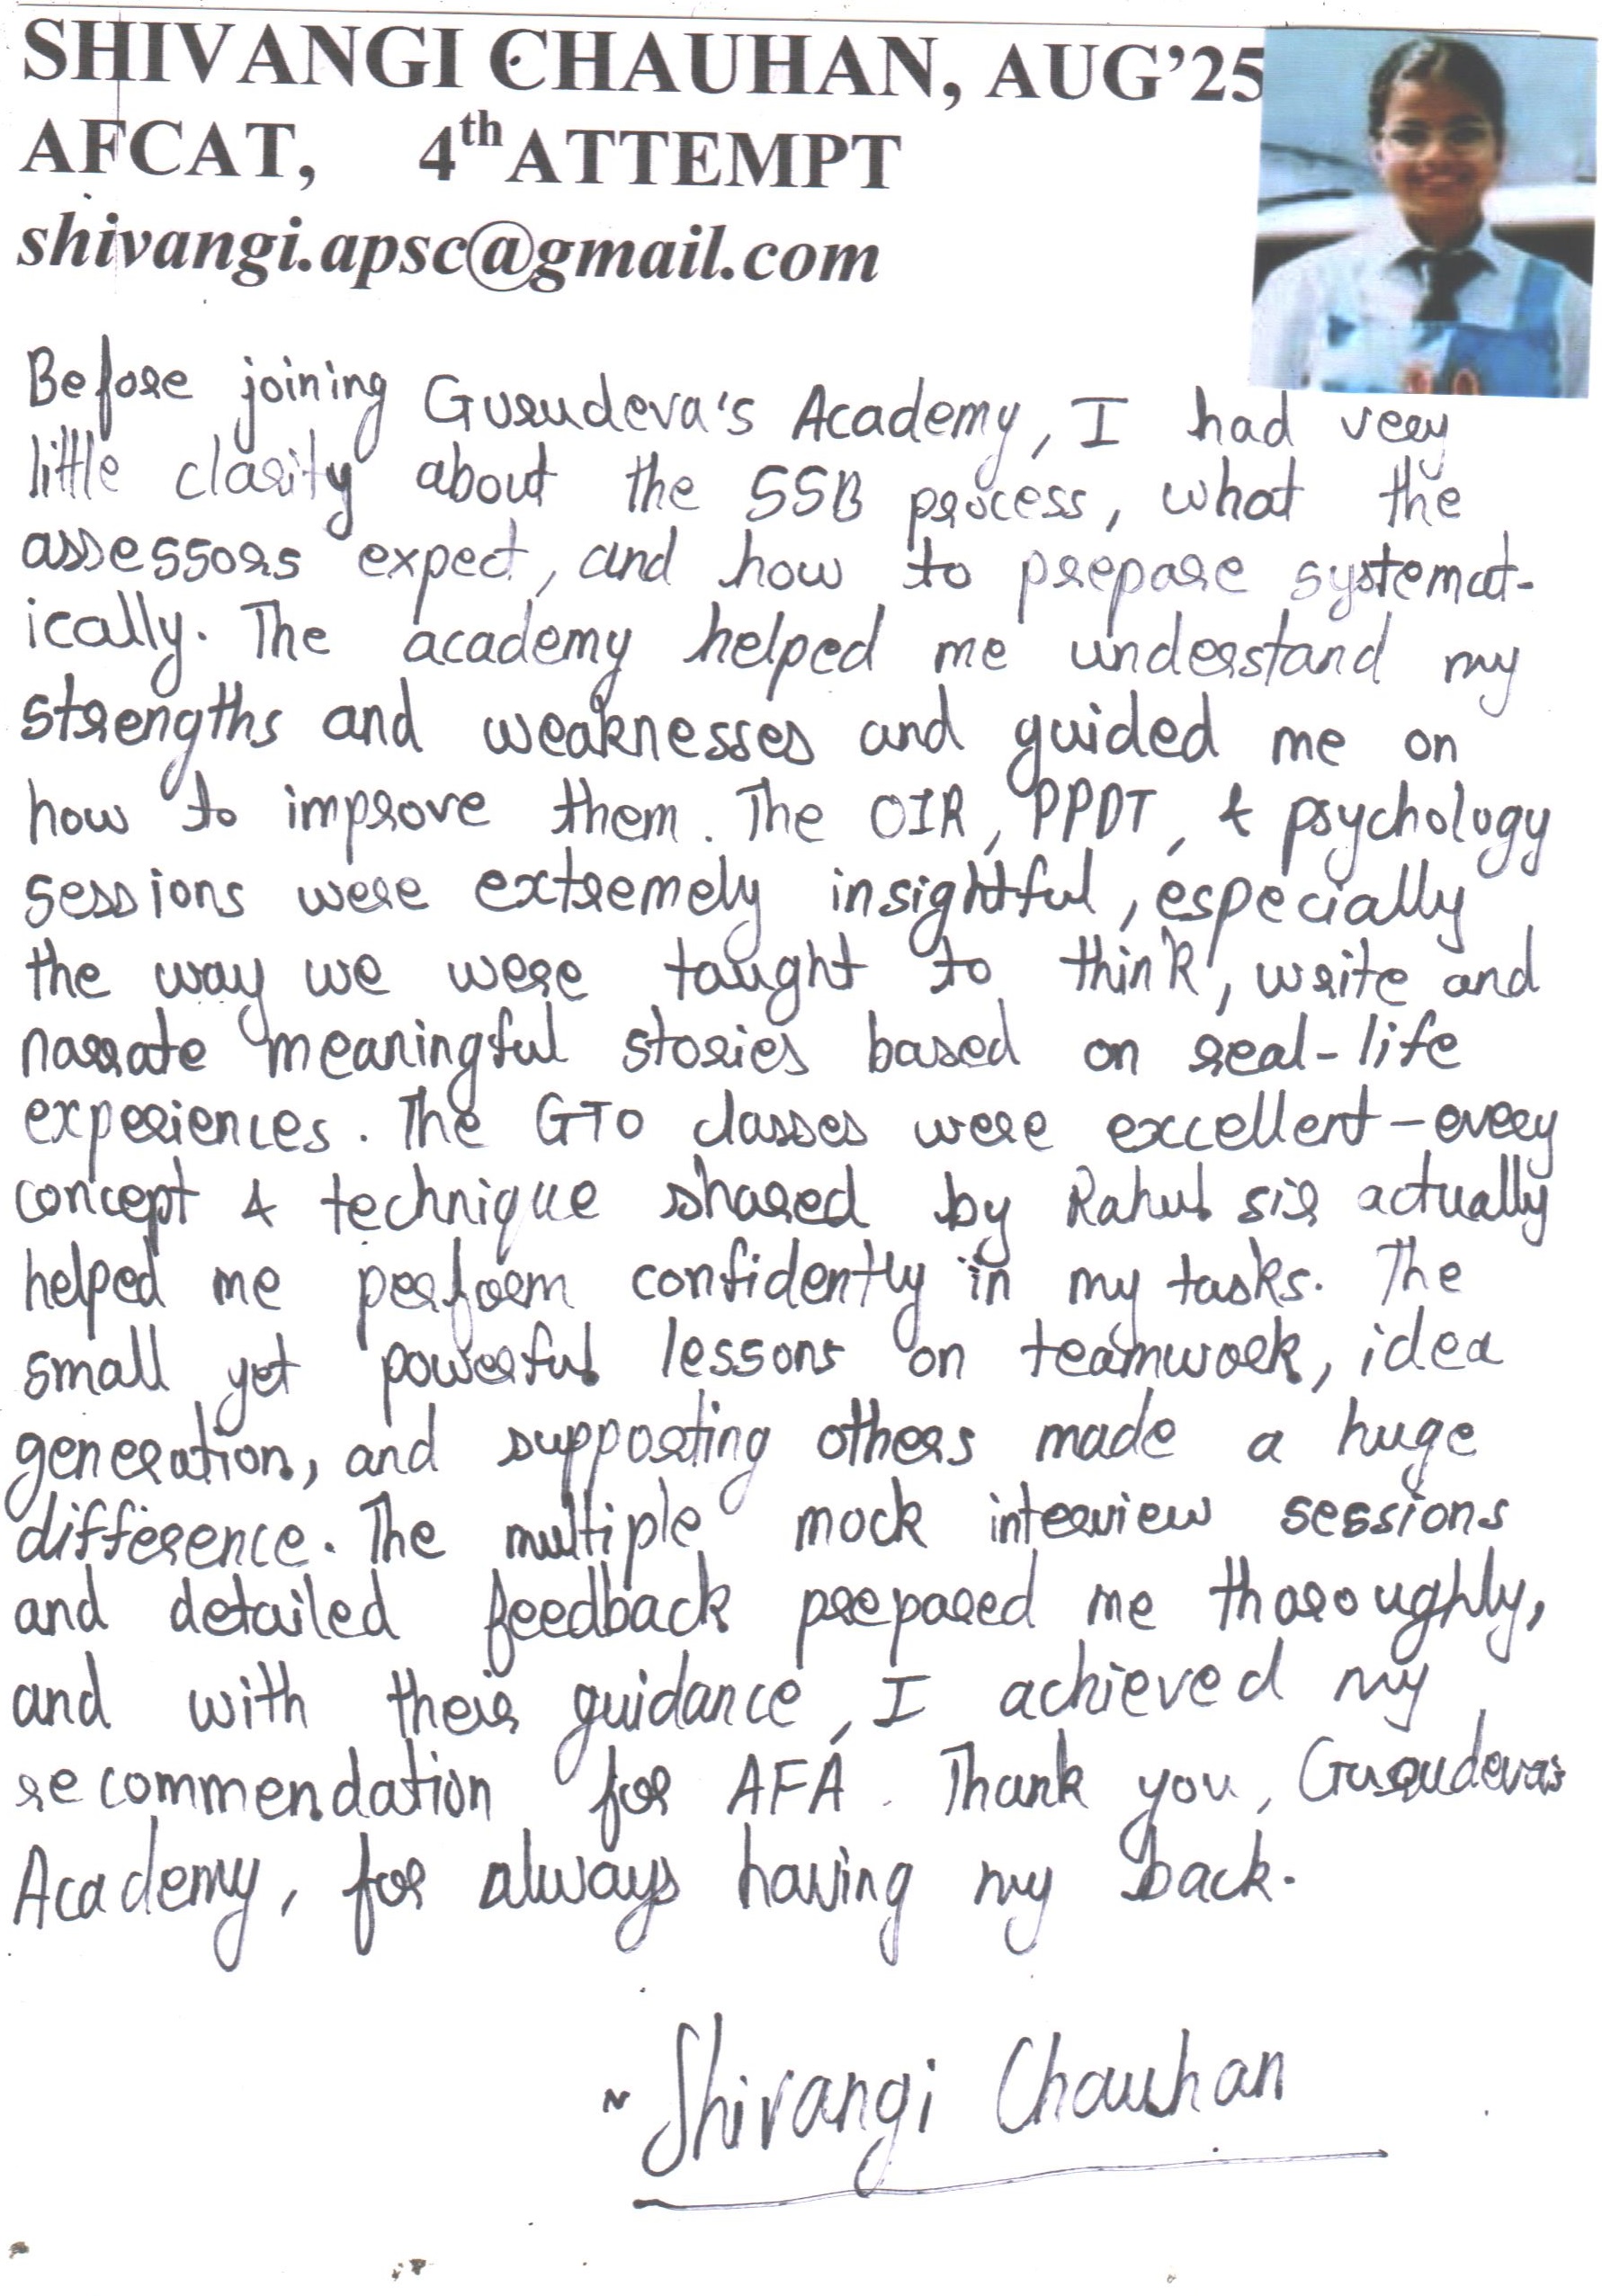 SHIVANGI CHAUHAN, AUG'25
AFCAT, 4th ATTEMPT
shivangi.apsc@gmail.com
Before joining Gurudeva's Academy, I had very
little clarity about the SSB process, what the
assessors expect, and how to prepare systemat-
ically. The academy helped me understand my
strengths and weaknesses and guided me on
how to improve them. The OIR, PPDT, & psychology
sessions were extremely insightful, especially
the way we were taught to think, write and
narrate meaningful stories based on real-life
experiences. The GTO classes were excellent - every
concept & technique shared by Rahul sir actually
helped me perform confidently in my tasks. The
small yet powerful lessons on teamwork, idea
generation, and supporting others made a huge
difference. The multiple mock interview sessions
and detailed feedback prepared me thoroughly,
and with their guidance, I achieved my
recommendation for AFA. Thank you, Gurudeva's
Academy, for always having my back.
~ Shivangi Chauhan